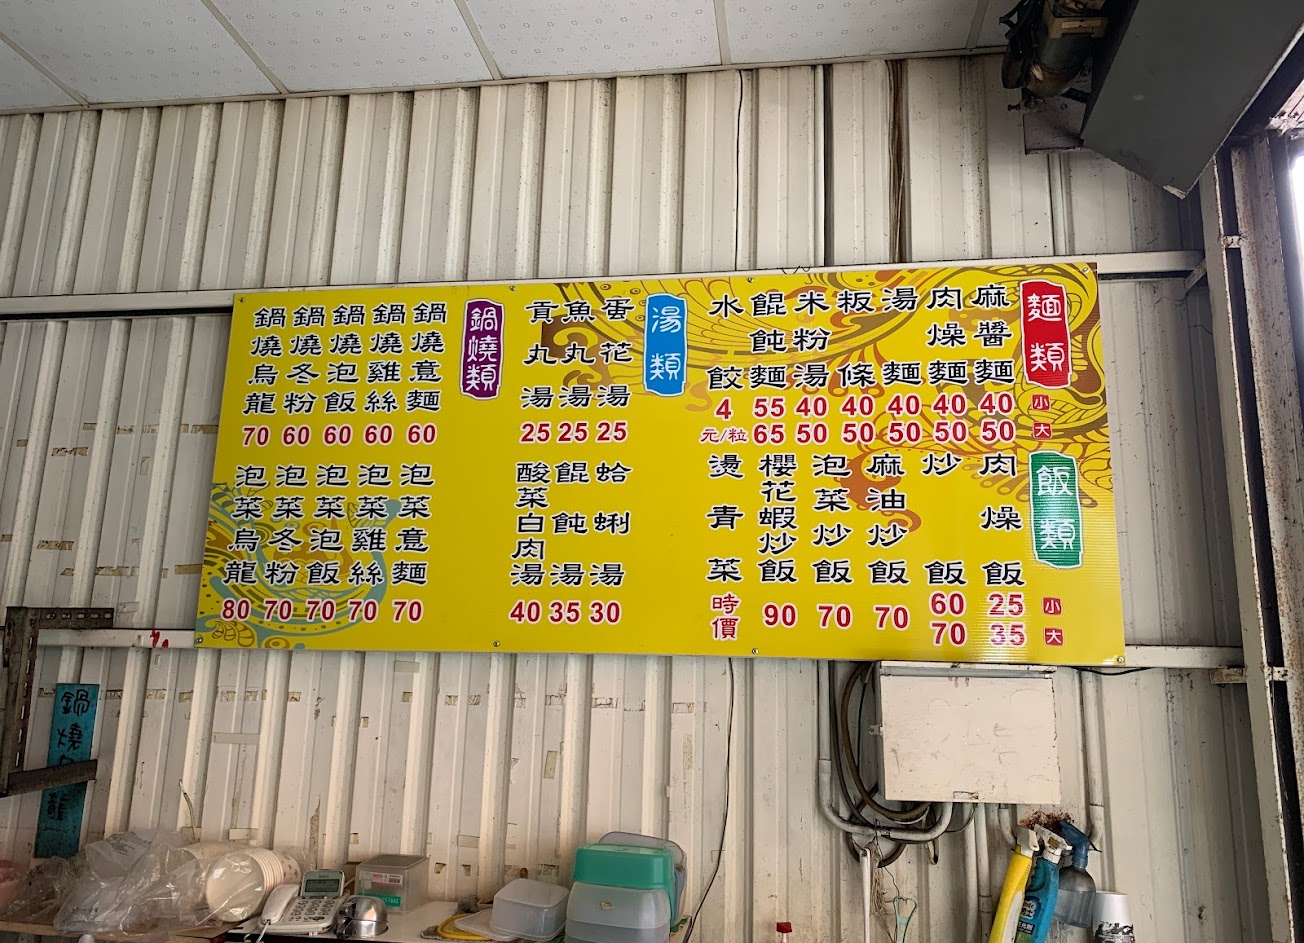 麵類
小
大
麻醬麵 40 50
肉燥麵 40 50
湯麵 40 50
粄條 40 50
米粉湯 40 50
餛飩麵 55 65
水餃 4 元/粒
飯類
小
大
肉燥飯 25 35
炒飯 60 70
麻油炒飯 70
泡菜炒飯 70
櫻花蝦炒飯 90
燙青菜 時價
湯類
蛋花湯 25
魚丸湯 25
貢丸湯 25
蛤蜊湯 30
餛飩湯 35
酸菜白肉湯 40
鍋燒類
鍋燒意麵 60
鍋燒雞絲 60
鍋燒泡飯 60
鍋燒冬粉 60
鍋燒烏龍 70
泡菜意麵 70
泡菜雞絲 70
泡菜泡飯 70
泡菜冬粉 70
泡菜烏龍 80
鍋燒
龍